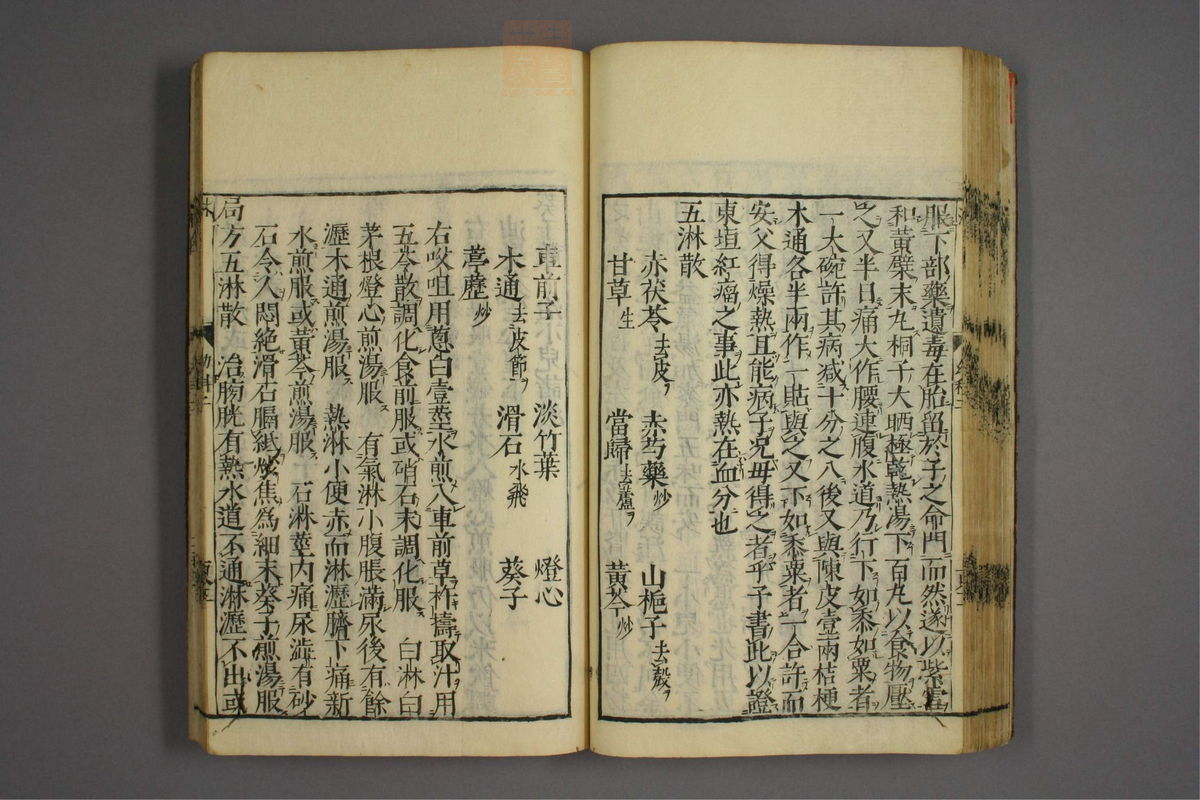 服下部藥遺毒在胎留於子之命門而然遂以紫雪
和黃蘗末丸桐子大晒極乾熱湯下百丸以食物壓
之又半日痛大作腰連腹水道乃行下如黍如粟者
一大碗許其病减十分之八後又與陳皮壹兩桔梗
木通各半兩作一貼與之又下如黍粟者一合許而
安父得燥熱且能病子况母得之者乎予書此以證
東垣紅瘤之事此亦熱在血分也
五淋散
赤茯苓去皮 赤芍藥炒 山梔子去殼
甘草生 當歸去蘆 黃芩炒
車前子 淡竹葉 燈心
木通去皮節 滑石水飛 葵子
葶藶炒
右㕮咀用蔥白壹莖水煎入車前草杵擣取汁用
五苓散調化食前服或硝石末調化服 白淋白
茅根燈心煎湯服 有氣淋小腹脹滿尿後有餘
瀝木通煎湯服 熱淋小便赤而淋瀝臍下痛新
水煎服或黃芩煎湯服 石淋莖内痛尿澁有砂
石令人悶絶滑石隔紙炒焦爲細末葵子煎湯服
局方五淋散 治膀胱有熱水道不通淋瀝不出或